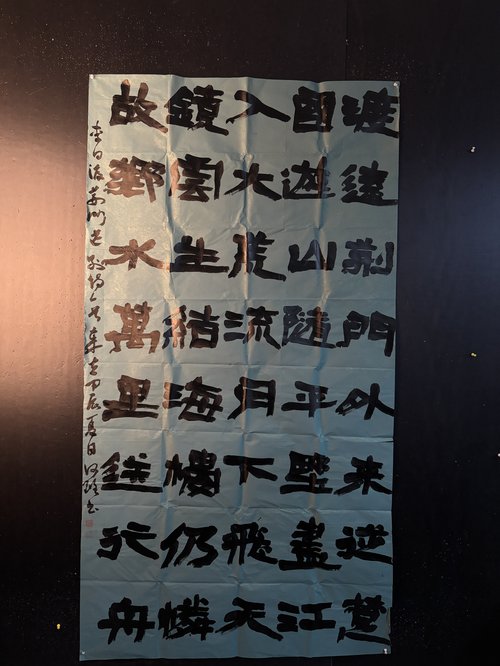 渡遠荆門外来從楚
國遊山隨平野盡江
入大荒流月下飛天
鏡雲生結海樓仍憐
故鄉水萬里送行舟
李白渡荆门送别诗一首 甲辰夏日 书